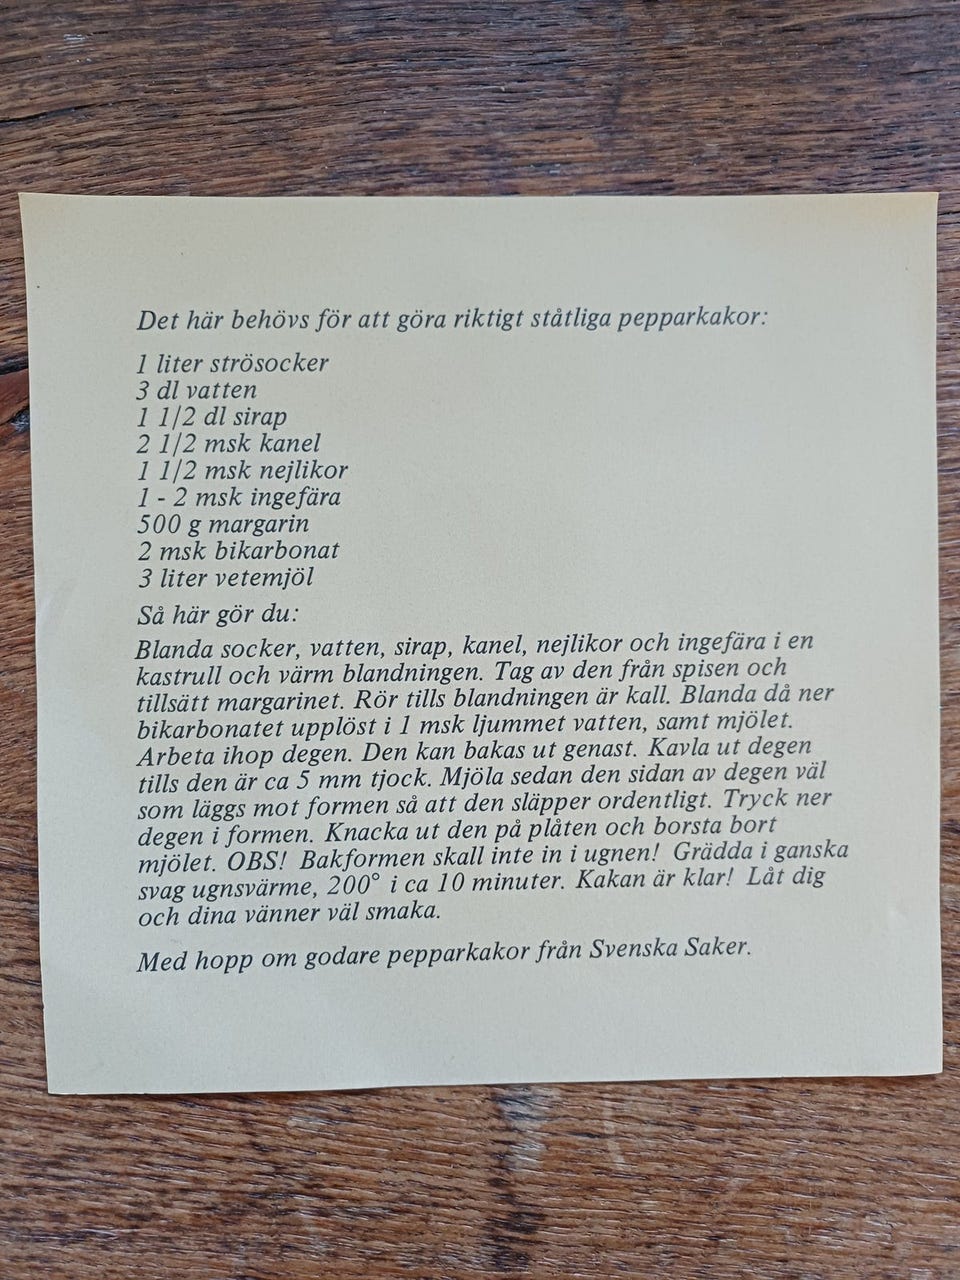 Det här behövs för att göra riktigt ståtliga pepparkakor:
1 liter strösocker
3 dl vatten
1 1/2 dl sirap
2 1/2 msk kanel
1 1/2 msk nejlikor
1 - 2 msk ingefära
500 g margarin
2 msk bikarbonat
3 liter vetemjöl
Så här gör du:
Blanda socker, vatten, sirap, kanel, nejlikor och ingefära i en
kastrull och värm blandningen. Tag av den från spisen och
tillsätt margarinet. Rör tills blandningen är kall. Blanda då ner
bikarbonatet upplöst i 1 msk ljummet vatten, samt mjölet.
Arbeta ihop degen. Den kan bakas ut genast. Kavla ut degen
tills den är ca 5 mm tjock. Mjöla sedan den sidan av degen väl
som läggs mot formen så att den släpper ordentligt. Tryck ner
degen i formen. Knacka ut den på plåten och borsta bort
mjölet. OBS! Bakformen skall inte in i ugnen! Grädda i ganska
svag ugnsvärme, 200° i ca 10 minuter. Kakan är klar! Låt dig
och dina vänner väl smaka.
Med hopp om godare pepparkakor från Svenska Saker.